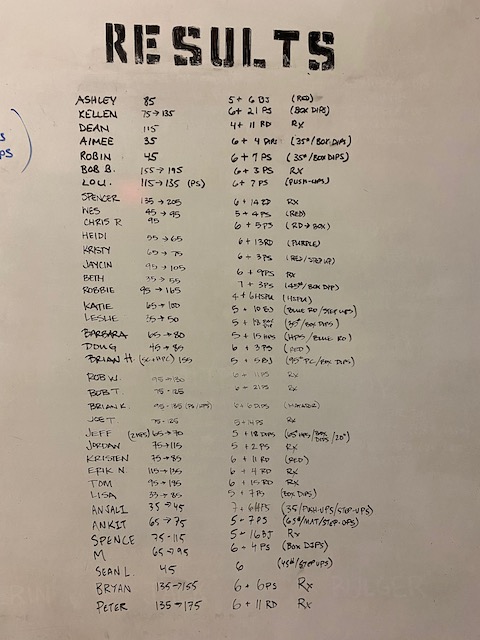 RESULTS
ASHLEY 85 5+6 BJ (RED)
KELLEN 75→135 6+21 PS (BOX DIPS)
DEAN 115 4+11 RD Rx
AIMEE 35 6+4 DIPS (35#/BOX DIPS)
ROBIN 45 6+7 PS (35#/BOX DIPS)
BOB B. 155→195 6+3 PS RX
LOU. 115→135 (PS) 6+7 PS (PUSH-UPS)
SPENCER 135→205 6+14 RD RX
WES 45→95 5+4 PS (RED)
CHRIS R 95 6+5 PS (RD→BOX)
HEIDI 55→65 6+13 RD (PURPLE)
KRISTY 65→75 6+3 PS (RED/STEP UP)
JAYCIN 95→105 6+9 PS RX
BETH 35→55 7+3 PS (45#/BOX DIP)
ROBBIE 95→165 4+6 HSPU (HSPU)
KATIE 65→100 5+10 BJ (BLUE RD/STEP UPS)
LESLIE 35→50 5+18 (35#/BOX DIPS)
BARBARA 65→80 5+15 HPS (HPS/BLUE RD)
DOUG 45→85 6+3 PS (RED)
BRIAN H. 155 5+5 BJ (95# PC/BOX DIPS)
ROB W. 95→130 6+11 PS RX
BOB T. 75-125 6+21 PS RX
BRIAN K. 6+6 DIPS
JOE T. 75-125 5+14 PS RX
JEFF 65→70 5+18 DIPS (65# HPS/BOX DIPS/20")
JORDAN 75→115 5+2 PS RX
KRISTEN 75→85 6+11 RD (RED)
ERIK N. 115→135 6+4 RD RX
TOM 95→185 6+15 RD RX
LISA 35→85 5+7 PS (BOX DIPS)
ANJALI 35→45 7+6 HPS (35/PUSH-UPS/STEP-UPS)
ANKIT 65→75 5+7 PS (65#/MAT/STEP-UPS)
SPENCE 75-115 5+16 BJ Rx
M 65→95 6+4 PS (BOX DIPS)
SEAN L. 45 6 (45#/STEP UPS)
BRYAN 135→155 6+6 PS RX
PETER 135→175 6+11 RD RX